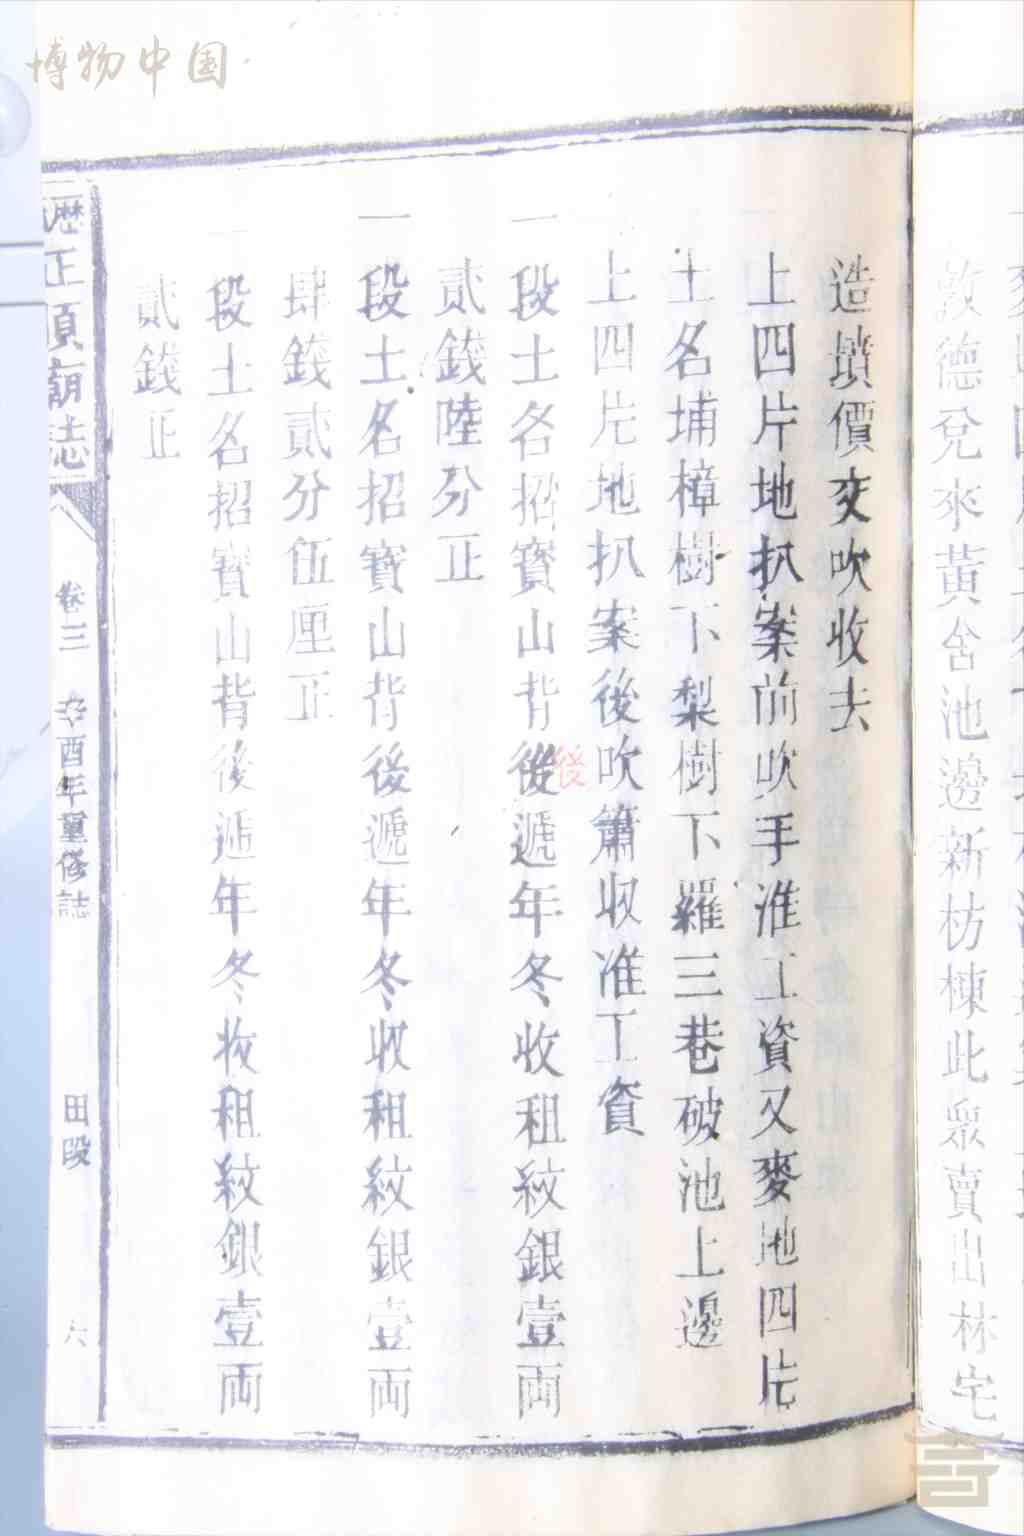 敦德兌來黃舍池邊新枋棟此眾賣出林宅
造墳價交吹收去
一上四片地扒案前吹手准工資又麥地四片
土名埔樟樹下梨樹下羅三巷破池上邊
上四片地扒案後吹簫收准工資
一段土名招寶山背後遞年冬收租紋銀壹両
後
貳錢陸分正
一段土名招寶山背後遞年冬收租紋銀壹両
肆錢貳分伍厘正
一段土名招寶山背後遞年冬收租紋銀壹両
貳錢正
歷正頂廟誌 卷三 辛酉年重修誌 田段 六
博物中国